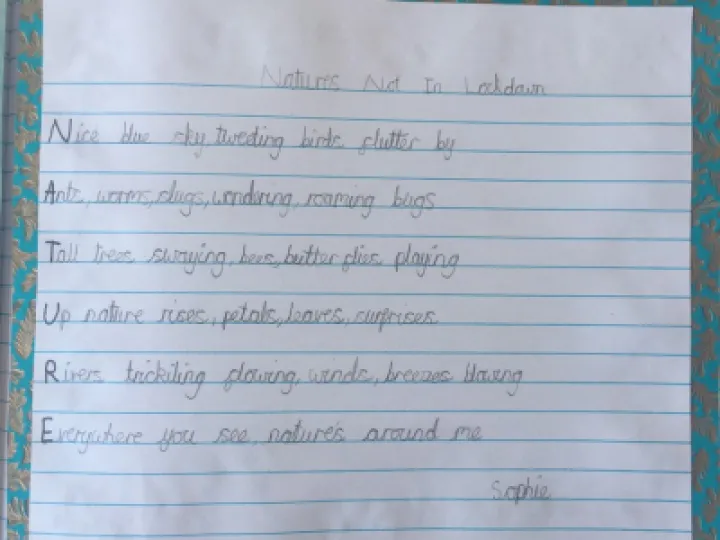 Natures Not In Lockdown
Nice blue sky, tweeting birds flutter by
Ants, worms, slugs, wondering, roaming bugs
Tall trees swaying, bees, butterflies playing
Up nature rises, petals, leaves, surprises
Rivers trickiling flowing, winds, breezes blowing
Everywhere you see, nature's around me
Sophie